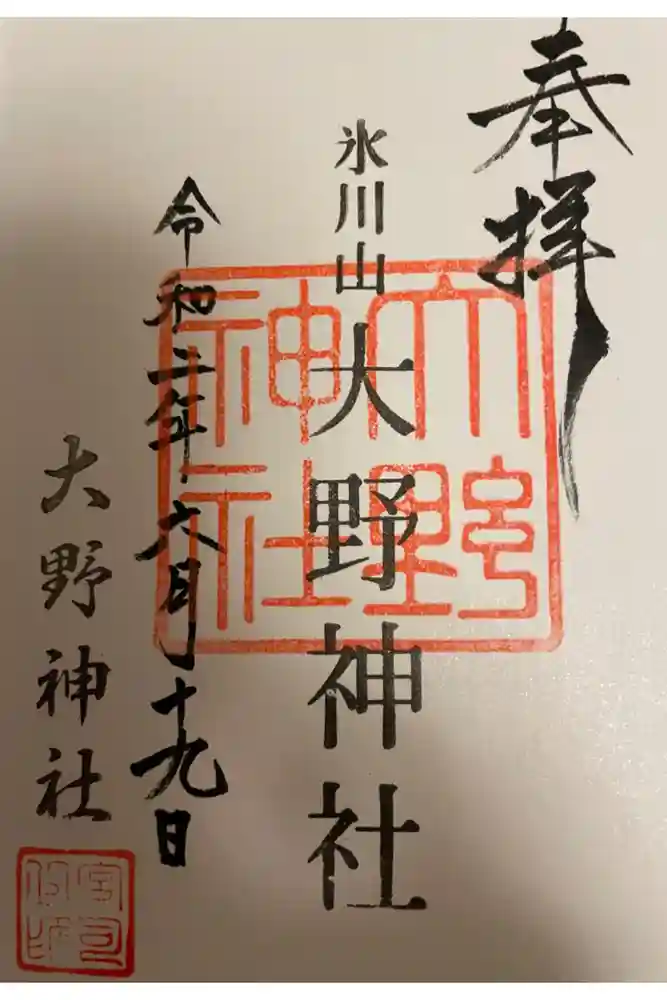 奉拝
氷川山
大野神社
大野神社
令和二年六月十九日
大野神社
宮司之印